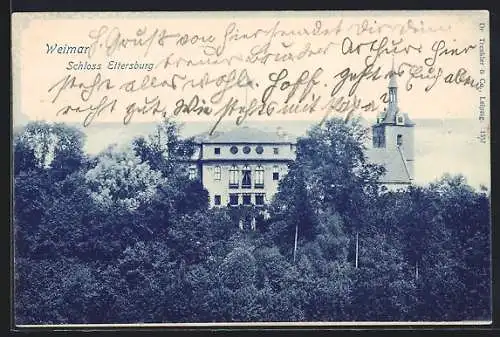 Weimar
Schloss Ettersburg
Gruß von hier sendet Dir Dein
treuer Bruder Arthur. Hier
steht alles wohl. Hoff. geht es Euch aber
recht gut. Wie stehts mit Papa?
Dr. Trenkler & Co., Leipzig. 1157